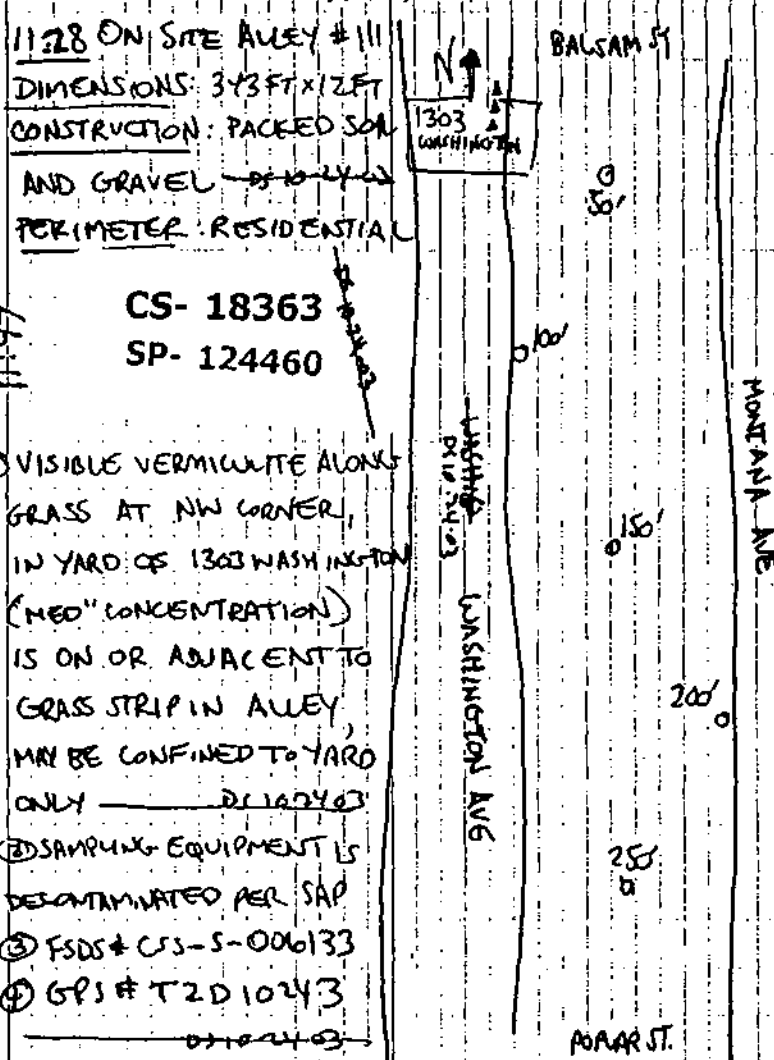 11:28 ON SITE ALLEY #111
DIMENSIONS: 343FT X 12FT
CONSTRUCTION: PACKED SOIL
AND GRAVEL DS 10-24-03
PERIMETER: RESIDENTIAL
DS 10-24-03
11:47
CS- 18363
SP- 124460
VISIBLE VERMICULITE ALONG
GRASS AT NW CORNER,
IN YARD OF 1303 WASHINGTON
(MED" CONCENTRATION)
IS ON OR ADJACENT TO
GRASS STRIP IN ALLEY,
MAY BE CONFINED TO YARD
ONLY DS 10-24-03
② SAMPLING EQUIPMENT IS
DECONTAMINATED PER SAP
③ FSDS# CSS-S-006133
④ GPS# T2D10243
DS 10-24-03
N
BALSAM ST
1303
WASHINGTON
50'
100'
150'
200'
250'
DS 10-24-03
WASHINGTON AVE
MONTANA AVE
POPLAR ST.